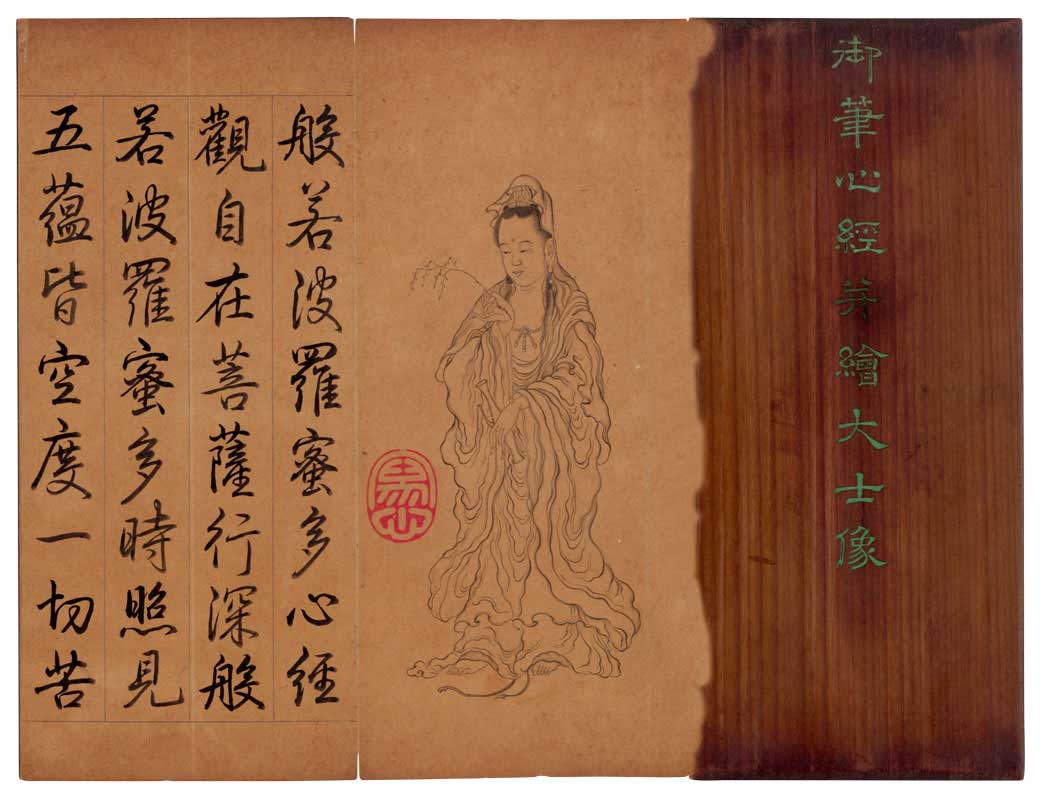 御筆心經并繪大士像
般若波羅蜜多心經
觀自在菩薩行深般
若波羅蜜多時照見
五蘊皆空度一切苦